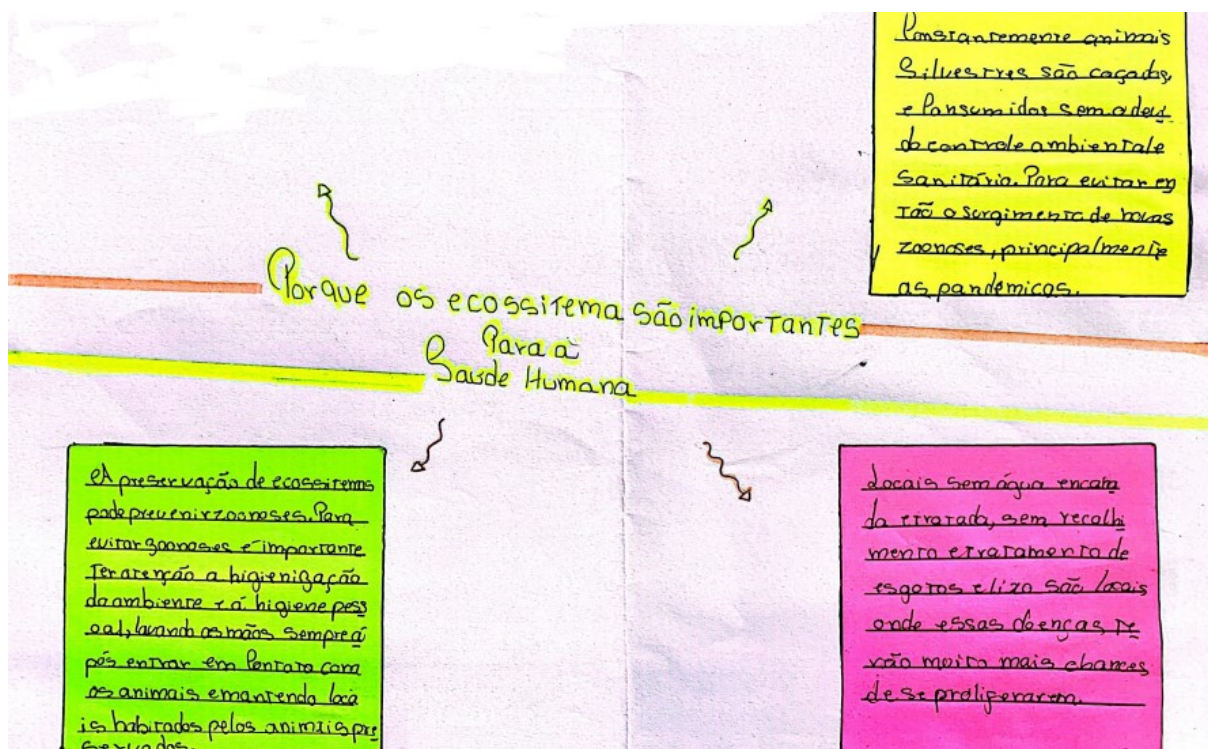 Constantemente animais
Silvestres são caçados,
e Consumidos sem adeu
do controle ambiental e
Sanitário. Para evitar en
Tão o surgimento de novas
zoonoses, principalmente
as pandêmicas.
Porque os ecossitema são importantes
Para a
Saúde Humana
A preservação de ecossitemas
pode prevenir zoonoses. Para
evitar zoonoses é importante
Ter atenção a higienização
do ambiente e á higiene pess
oal, lavando as mãos sempre á
pós entrar em Contato com
os animais e mantendo loca
is habitados pelos animais pre
servados.
Locais sem água encana
da e tratada, sem recolhi
mento e tratamento de
esgotos e lixo São locais
onde essas doenças te
rão muito mais chances
de se proliferarem.